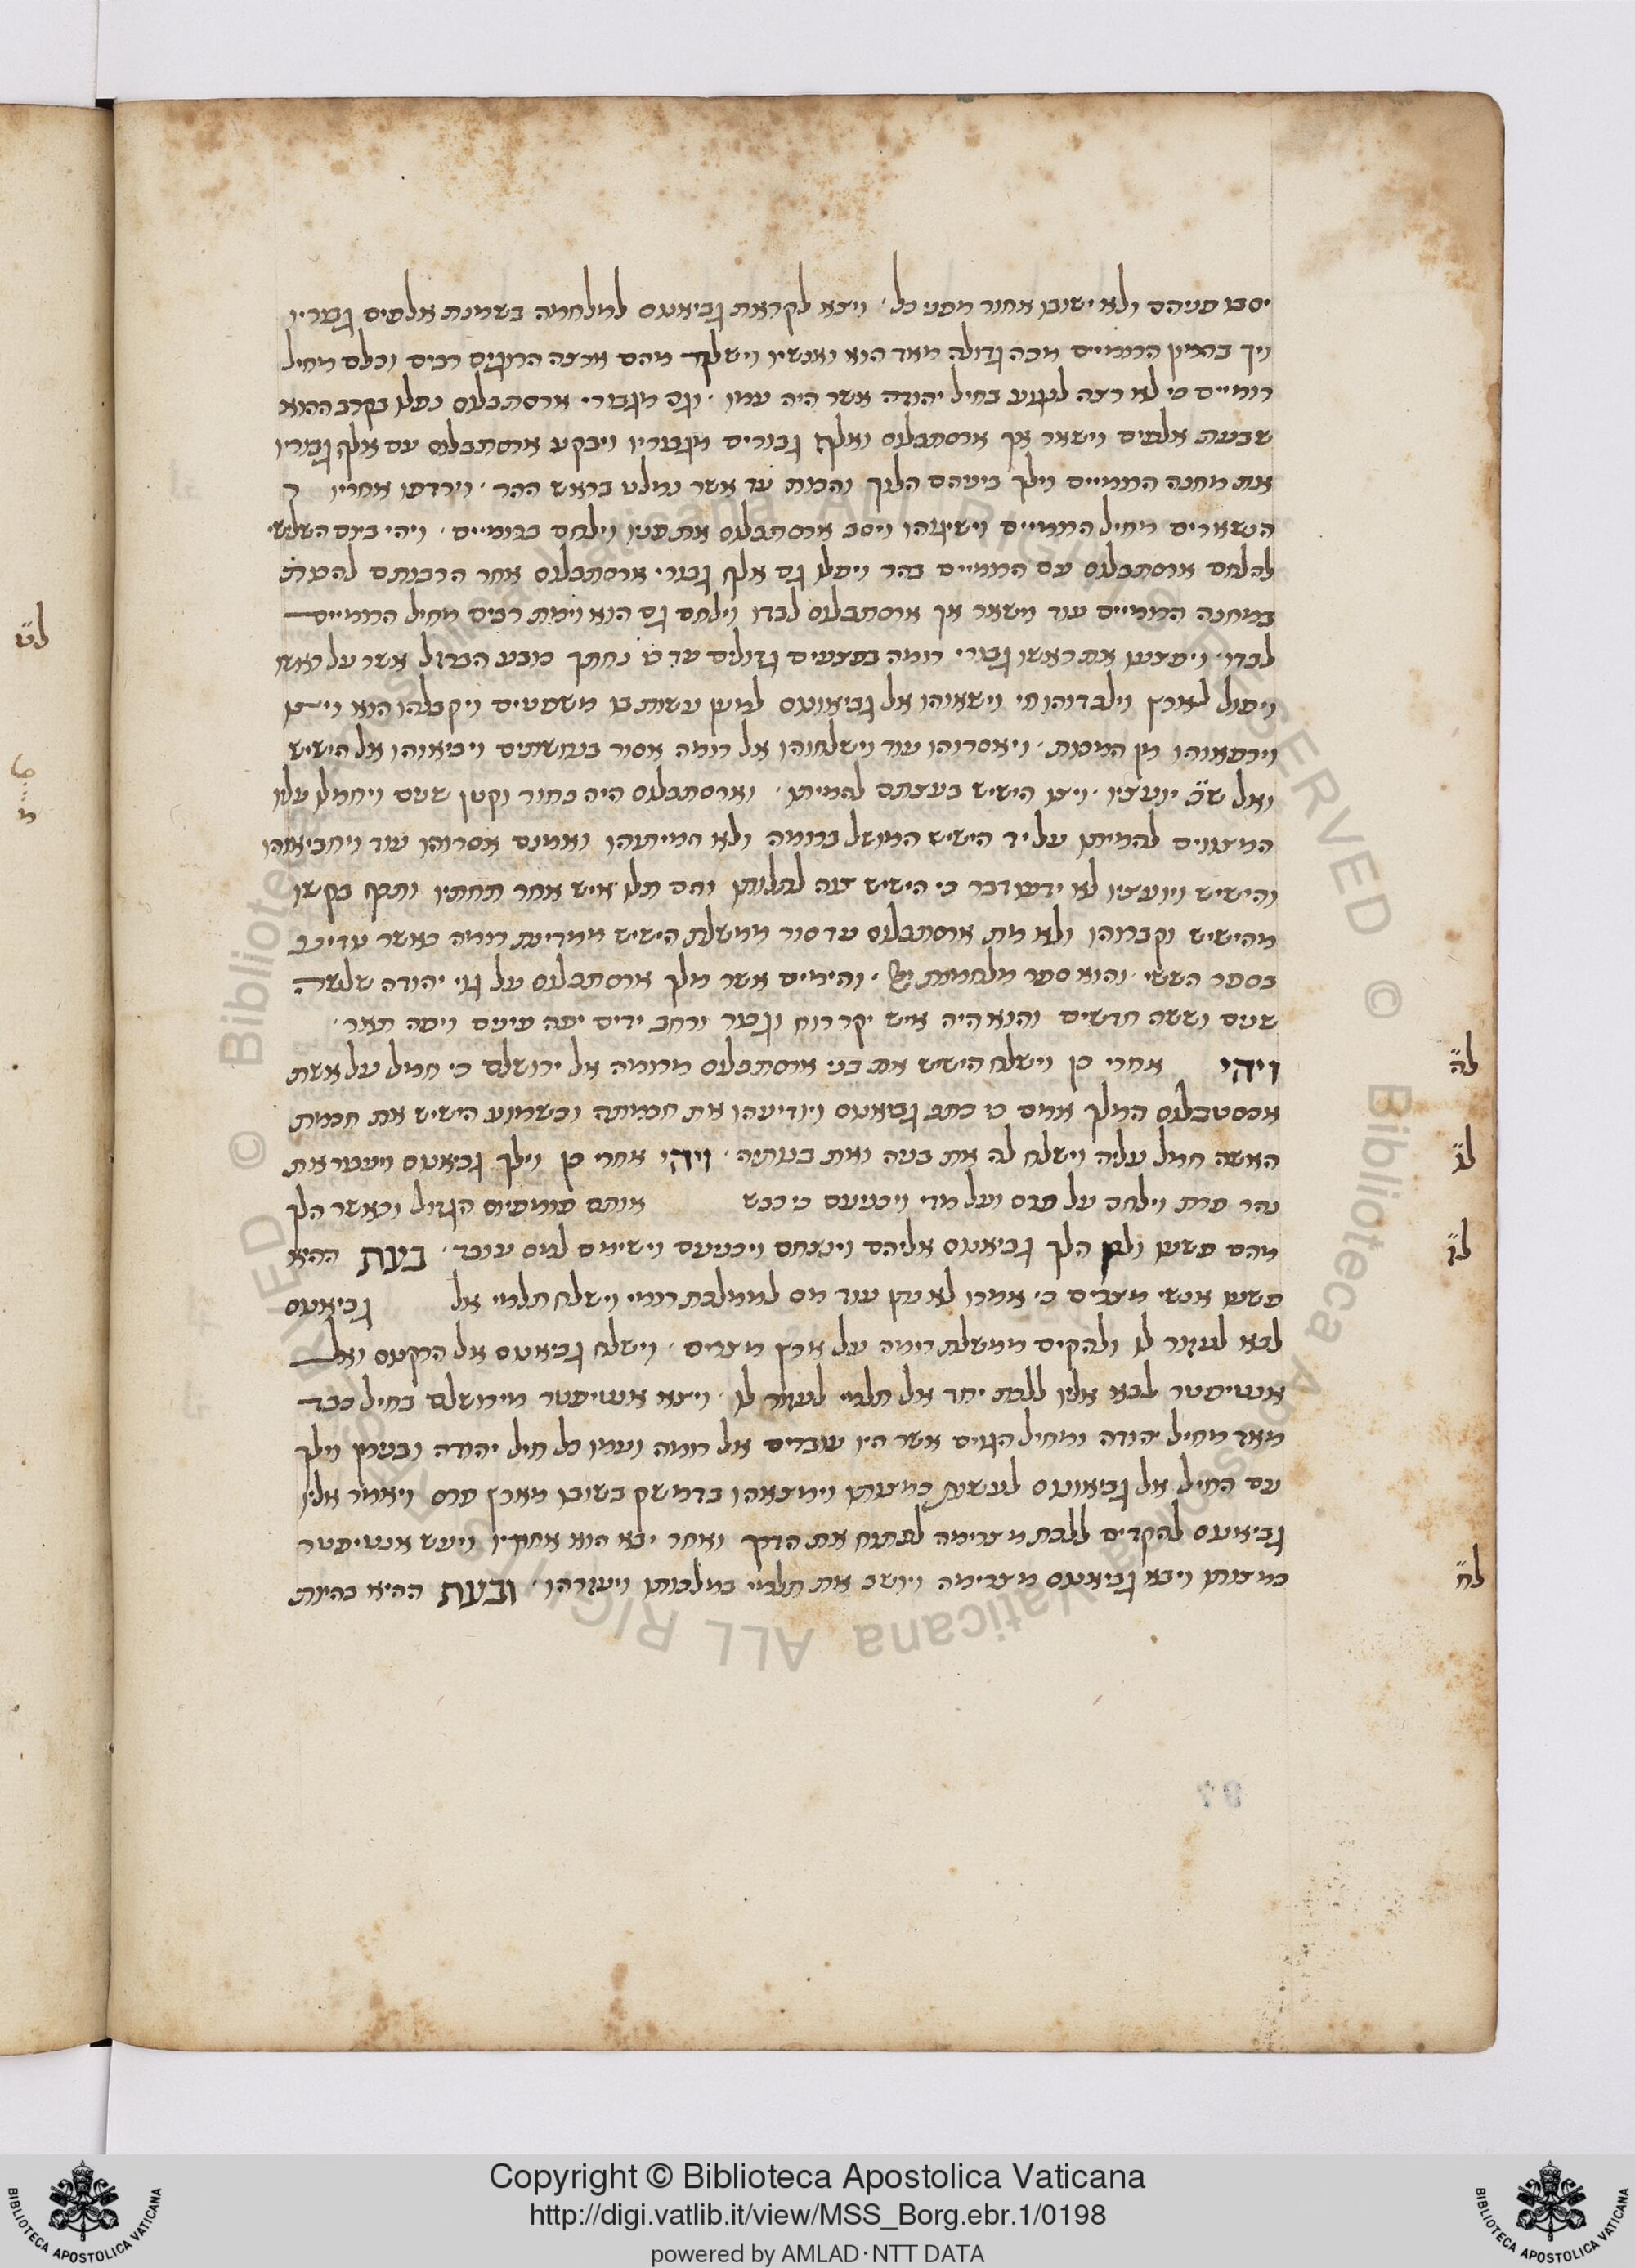 יסבו פניהם ולא ישובו אחור מפני כל · ויצא לקראת גביאנוס למלחמה בשמנת אלפים גבוריו
ויך בהמון הרומיים מכה גדולה מאד הוא ואנשיו וישלך מהם ארצה הרוגים רבים וכלם מחיל
רומיים כי לא רצה לנגוע בחיל יהודה אשר היה עמו · וגם מגבורי ארסתבלוס נפלו בקרב ההוא
שבעת אלפים וישאר אך ארסתבלוס ואלף גבורים מגבוריו ויבקע ארסתבלוס עם אלף גבוריו
את מחנה הרומיים וילך ביניהם הלוך והכות עד אשר נמלט בראש ההר · וירדפו אחריו
הנשארים מחיל הרומיים וישיגוהו ויסב ארסתבלוס את פניו וילחם ברומיים · ויהי ביום השלישי
להלחם ארסתבלוס עם הרומיים בהר ויפלו גם אלף גבורי ארסתבלוס אחר הרבותם להמית
במחנה הרומיים עוד וישאר אך ארסתבלוס לבדו וילחם גם הוא וימת רבים מחיל הרומיים
לבדו · ויפצעו את ראשו גבורי רומה בפצעים גדולים עד כי נחתך כובע הברזל אשר על ראשו
ויפול לארץ וילכדוהו חי וישאוהו אל גביאונוס למען עשות בו משפטים ויקבלהו הוא ויצו
וירפאוהו מן המכות · ויאסרוהו עוד וישלחוהו אל רומה אסור בנחשתים ויביאוהו אל הישיש
ואל ש״כ יועציו · ויצו הישיש בעצתם להמיתו · וארסתבלוס היה בחור וקטן שנים ויחמלו עליו
המצווים להמיתו על יד הישיש המושל ברומה ולא המיתוהו ואמנם אסרוהו עוד ויחביאוהו
והישיש ויועציו לא ידעו דבר כי הישיש צוה לתלותו והם תלו איש אחר תחתיו ותכף בקשו
מהישיש וקברוהו ולא מת ארסתבלוס עד סור ממשלת הישיש ממדינת רומה כאשר עדיין
בספר הששי · והוא ספר מלחמות · והימים אשר מלך ארסתבלוס על גוי יהודה שלשה
שנים וששה חדשים והוא היה איש יקר רוח וגבור ורחב ידים יפה עינים ויפה תאר ·
ויהי אחרי כן וישלח הישיש את בני ארסתבלוס מרומה אל ירושלם כי חמל על אשת
ארסטבלוס המלך אמם כי כתב גביאנוס ויודיעהו את חכמתה וכשמוע הישיש את חכמת
האשה חמל עליה וישלח לה את בניה ואת בנותיה · ויהי אחרי כן וילך גביאנוס ויעבור את
נהר פרת וילחם על פרס ועל מדי ויכניעם כי כבש אותם פומפיוס הגדול וכאשר הלך
מהם פשעו ולכן הלך גביאנוס אליהם וינצחם ויכניעם וישימם למס עובד · בעת ההיא
פשעו אנשי מצרים כי אמרו לא נתן עוד מס לממלכת רומי וישלח תלמי אל גביאנוס
לבא לעזור לו ולהקים ממשלת רומה על ארץ מצרים · וישלח גביאנוס אל הרקנוס ואל
אנטיפטר לבא אליו ללכת יחד אל תלמי לעזור לו · ויצא אנטיפטר מירושלם בחיל כבד
מאד מחיל יהודה ומחיל הגוים אשר היו עובדים אל רומה ועמו כל חיל יהודה ובניו וילך
עם החיל אל גביאונוס לעשות כמצותו וימצאהו בדמשק בשובו מארץ פרס ויאמר אליו
גביאנוס להקדים ללכת מצרימה לפתוח את הדרך ואחר יבא הוא אחריו ויעש אנטיפטר
כמצותו ויבא גביאנוס מצרימה ויושב את תלמי במלכותו ויעזרהו · ובעת ההיא בהיות
ל״ה
ל״ו
ל״ז
ל״ח
ל״ט
Copyright © Biblioteca Apostolica Vaticana
http://digi.vatlib.it/view/MSS_Borg.ebr.1/0198
powered by AMLAD·NTT DATA